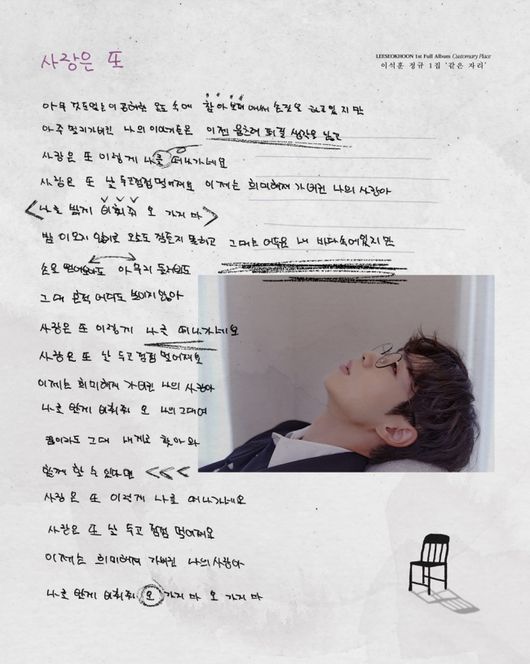 사랑은 또
LEESEOKHOON 1st Full Album Customary Place
이석훈 정규 1집 '같은 자리'
아무 것도 없는 이 공허한 오늘 속에 찾아보려 애써 손짓을 하고 있지만
아주 멀리 가버린 나의 이야기들은 이젠 움츠려 펴질 생각을 않고
사랑은 또 이렇게 나를 떠나가네요
사랑은 또 날 두고 점점 멀어져요 이제는 희미해져 가버린 나의 사랑아
나를 밝게 비춰줘 오 가지마
밤이 오지 않기를 오늘도 잠들지 못하고 그대는 어두운 내 바다 속에 있지만
손을 뻗어보아도 아무리 둘러봐도
그대 흔적 어디도 보이지 않아
사랑은 또 이렇게 나를 떠나가네요
사랑은 또 날 두고 점점 멀어져요
이제는 희미해져 가버린 나의 사랑아
나를 밝게 비춰줘 오 나의 그대여
꿈이라도 그대 내게로 찾아와
함께 할 수 있다면
사랑은 또 이렇게 나를 떠나가네요
사랑은 또 날 두고 점점 멀어져요
이제는 희미해져 가버린 나의 사랑아
나를 밝게 비춰줘 오 가지마 오 가지마